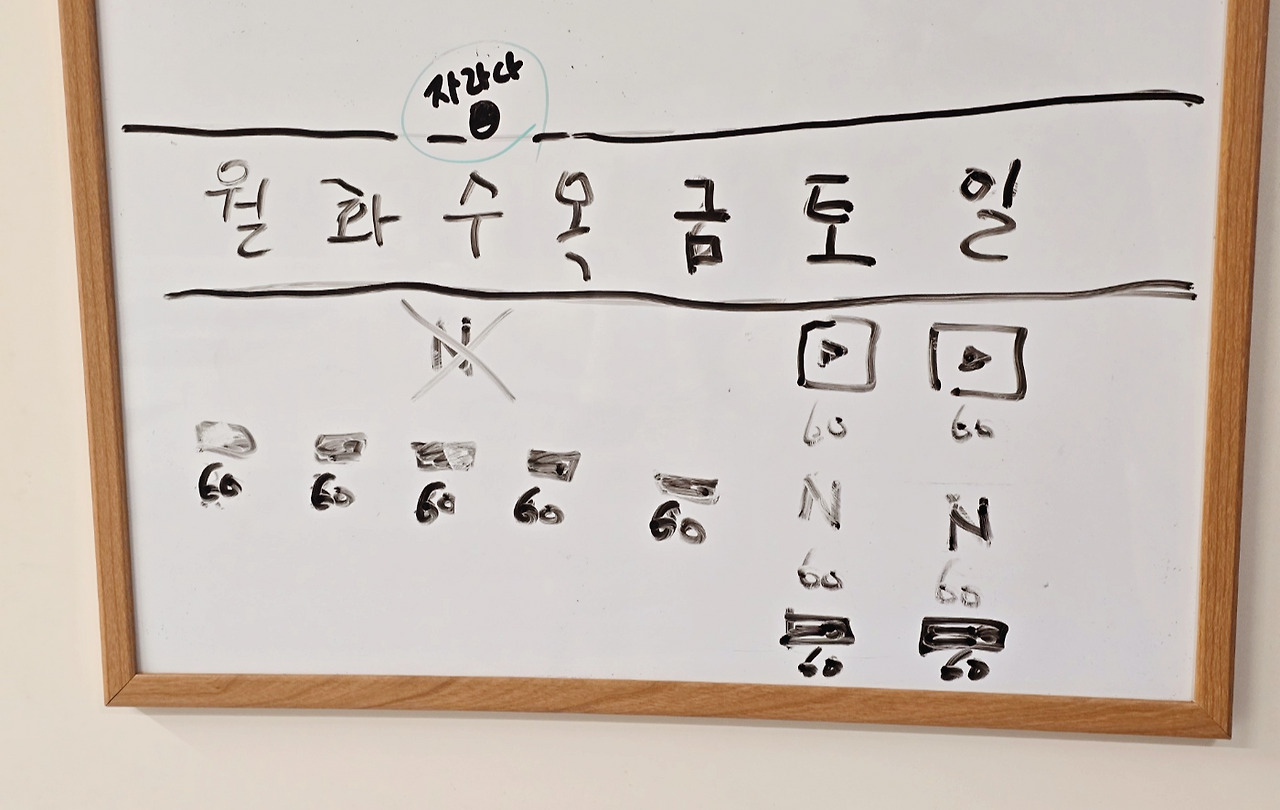 자라다
월 화 수 목 금 토 일
N
60 60
60 60 60 60 60
N N
60 60
60 60